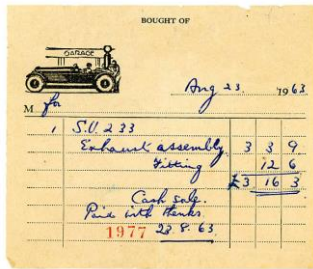 BOUGHT OF
GARAGE
Aug 23 1963
M for
1 S.U. 233
Exhaust assembly 3 3 9
Fitting 12 6
£3 16 3
Cash sale.
Paid with thanks.
1977 23.8.63.